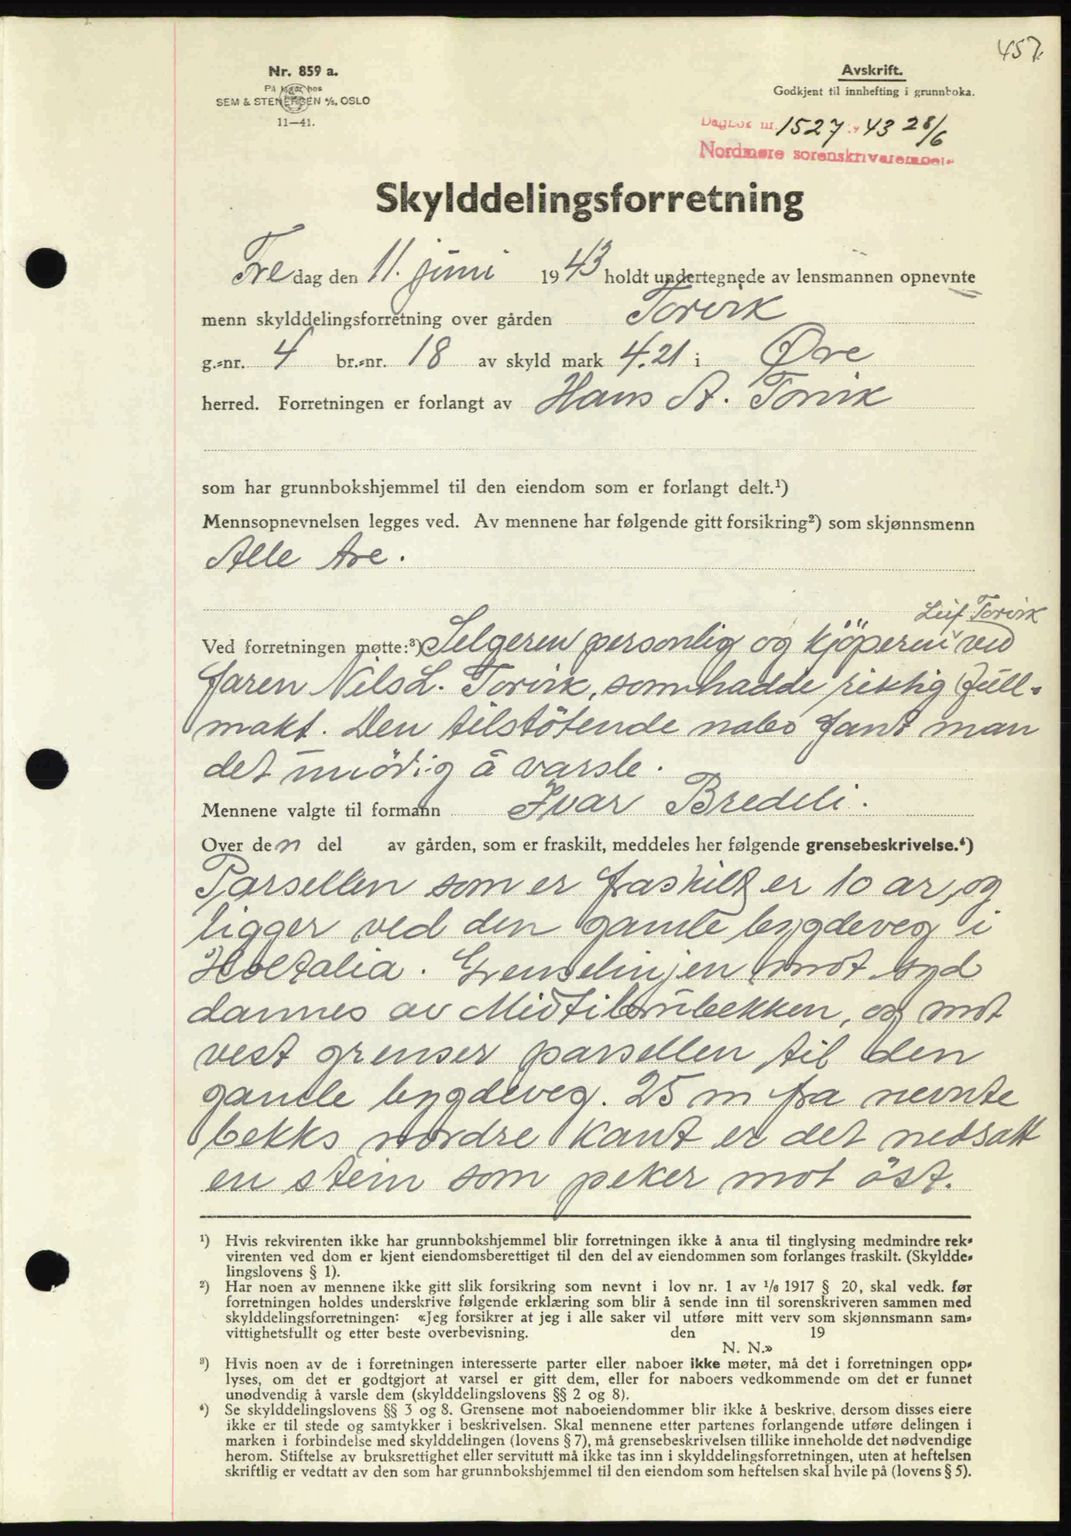 457.
Nr. 859 a.
På lager hos
SEM & STENERSEN A/S, OSLO
11—41.
Avskrift.
Godkjent til innhefting i grunnboka.
Dagbok nr. 1527 43 28/6
Nordmøre sorenskriverembete
Skylddelingsforretning
Fredag den 11. juni 1943 holdt undertegnede av lensmannen opnevnte
menn skylddelingsforretning over gården Torvik
g.-nr. 4 br.-nr. 18 av skyld mark 4.21 i Øre
herred. Forretningen er forlangt av Hans A. Torvik
som har grunnbokshjemmel til den eiendom som er forlangt delt.¹)
Mennsopnevnelsen legges ved. Av mennene har følgende gitt forsikring²) som skjønnsmenn
Alle tre.
Leif Torvik
Ved forretningen møtte:³) Selgeren personlig og kjöperen ved
faren Nils L. Torvik, som hadde riktig full-
makt. Den tilstötende nabo fant man
det unödig å varsle.
Mennene valgte til formann Ivar Bredeli.
Over den del av gården, som er fraskilt, meddeles her følgende grensebeskrivelse.⁴)
Parsellen som er fraskilt er 10 ar, og
ligger ved den gamle bygdeveg i
Holtalia. Grenselinjen mot syd
dannes av bekken, og mot
vest grenser parsellen til den
gamle bygdeveg. 25 m fra nevnte
bekks nordre kant er det nedsatt
en stein som peker mot öst.
¹) Hvis rekvirenten ikke har grunnbokshjemmel blir forretningen ikke å anta til tinglysing medmindre rek-
virenten ved dom er kjent eiendomsberettiget til den del av eiendommen som forlanges fraskilt. (Skyldde-
lingslovens § 1).
²) Har noen av mennene ikke gitt slik forsikring som nevnt i lov nr. 1 av 1/8 1917 § 20, skal vedk. før
forretningen holdes underskrive følgende erklæring som blir å sende inn til sorenskriveren sammen med
skylddelingsforretningen: «Jeg forsikrer at jeg i alle saker vil utføre mitt verv som skjønnsmann sam-
vittighetsfullt og etter beste overbevisning. den 19
N. N.»
³) Hvis noen av de i forretningen interesserte parter eller naboer ikke møter, må det i forretningen opp-
lyses, om det er godtgjort at varsel er gitt dem, eller for naboers vedkommende om det er funnet
unødvendig å varsle dem (skylddelingslovens §§ 2 og 8).
⁴) Se skylddelingslovens §§ 3 og 8. Grensene mot naboeiendommer blir ikke å beskrive, dersom disses eiere
ikke er til stede og samtykker i beskrivelsen. Skal mennene etter partenes forlangende utføre delingen i
marken i forbindelse med skylddelingen (lovens § 7), må grensebeskrivelsen tillike inneholde det nødvendige
herom. Stiftelse av bruksrettighet eller servitutt må ikke tas inn i skylddelingsforretningen, uten at heftelsen
skriftlig er vedtatt av den som har grunnbokshjemmel til den eiendom som heftelsen skal hvile på (lovens § 5).